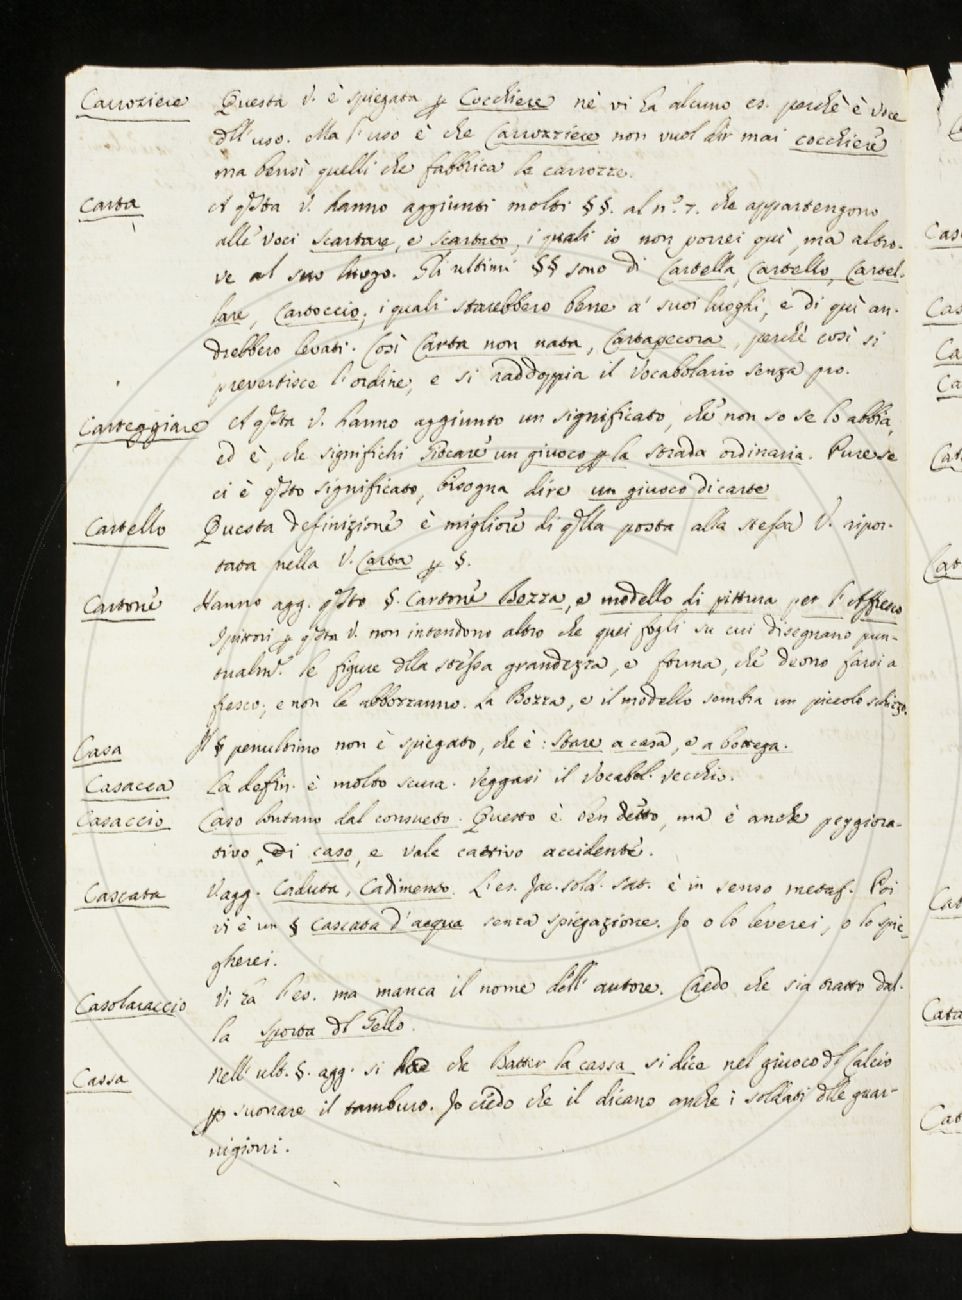 Carroziere Questa V. è spiegata p Cocchiere nè vi ha alcuno es. perchè è voce
dll'uso. Ma l'uso è che Carrozziere non vuol dir mai cocchiere
ma bensì quelli che fabbrica le carrozze.
Carta A qsta V. hanno aggiunti molti §§. al n.° 7. che appartengono
alle voci scartare, e scartato, i quali io non porrei quì, ma altro-
ve al suo luogo. Gli ultimi §§ sono di Cartella, Cartello, Cartel-
lare, Cartoccio, i quali starebbero bene a' suoi luoghi, e di quì an-
drebbero levati. Così Carta non nata, Cartapecora, perchè così si
pervertisce l'ordine, e si raddoppia il Vocabolario senza pro.
Carteggiare A qsta V. hanno aggiunto un significato, che non so se lo abbia,
ed è, che significhi Giocare un giuoco p la strada ordinaria. Pure se
ci è qsto significato, bisogna dire un giuoco di carte
Cartello Questa definizione è migliore di qlla posta alla stessa V. ripor-
tata nella V. Carta p §.
Cartone Hanno agg. qsto §. Cartone Bozza, e modello di pittura per l'Affresco
I pittori p qsta V. non intendono altro che quei fogli su cui disegnano pun-
tualm.e le figure dlla stessa grandezza, e forma, che deono farsi a
fresco; e non le abbozzanno. La Bozza, e il modello sembra un piccolo schizzo.
Casa Il § penultimo non è spiegato, che è: stare a casa, e a bottega.
Casacca La defin. è molto scura. Veggasi il Vocabol. vecchio.
Casaccio Caso lontano dal consueto. Questo è ben detto, ma è anche peggiora-
tivo di caso, e vale cattivo accidente.
Cascata V. agg. Caduta, Cadimento. L'es. Jac. sold. sat. è in senso metaf. Poi
vi è un § Cascata d'acqua senza spiegazione. Io o lo leverei, o lo spie-
gherei.
Casolaraccio Vi ha l'es. ma manca il nome dell'autore. Credo che sia tratto dal-
la Sporta dl Gello.
Cassa Nell'ult. §. agg. si che Batter la cassa si dice nel giuoco dl Calcio
p suonare il tamburo. Io credo che il dicano anche i soldati dlle guar-
nigioni.